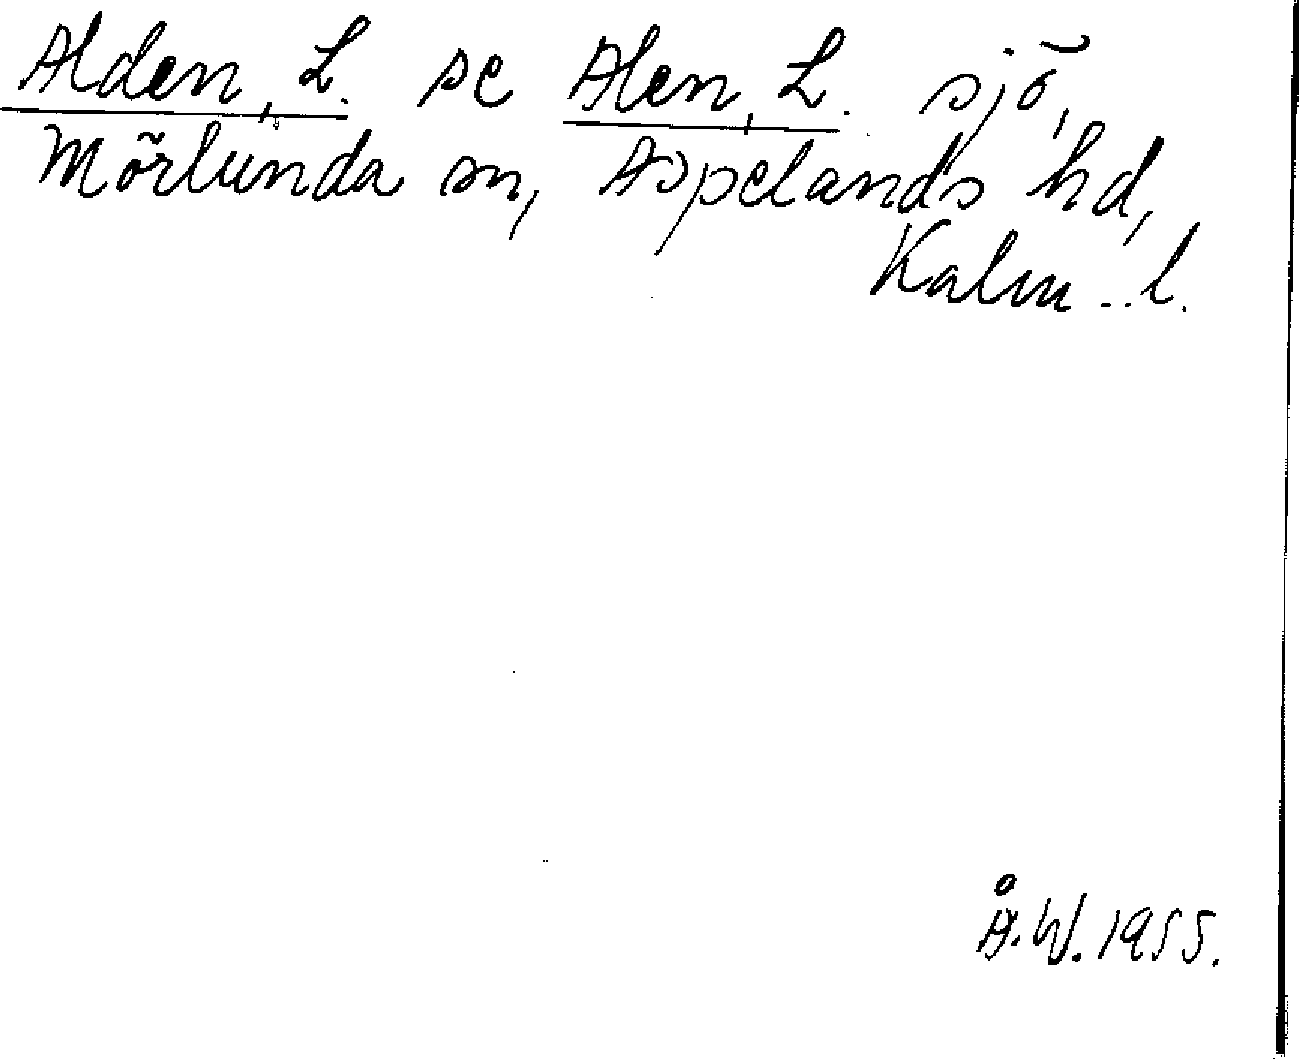 Alden, L. se Alen, L. sjö,
Mörlunda sn, Aspelands hd,
Kalm. l.
Å.W. 1955.